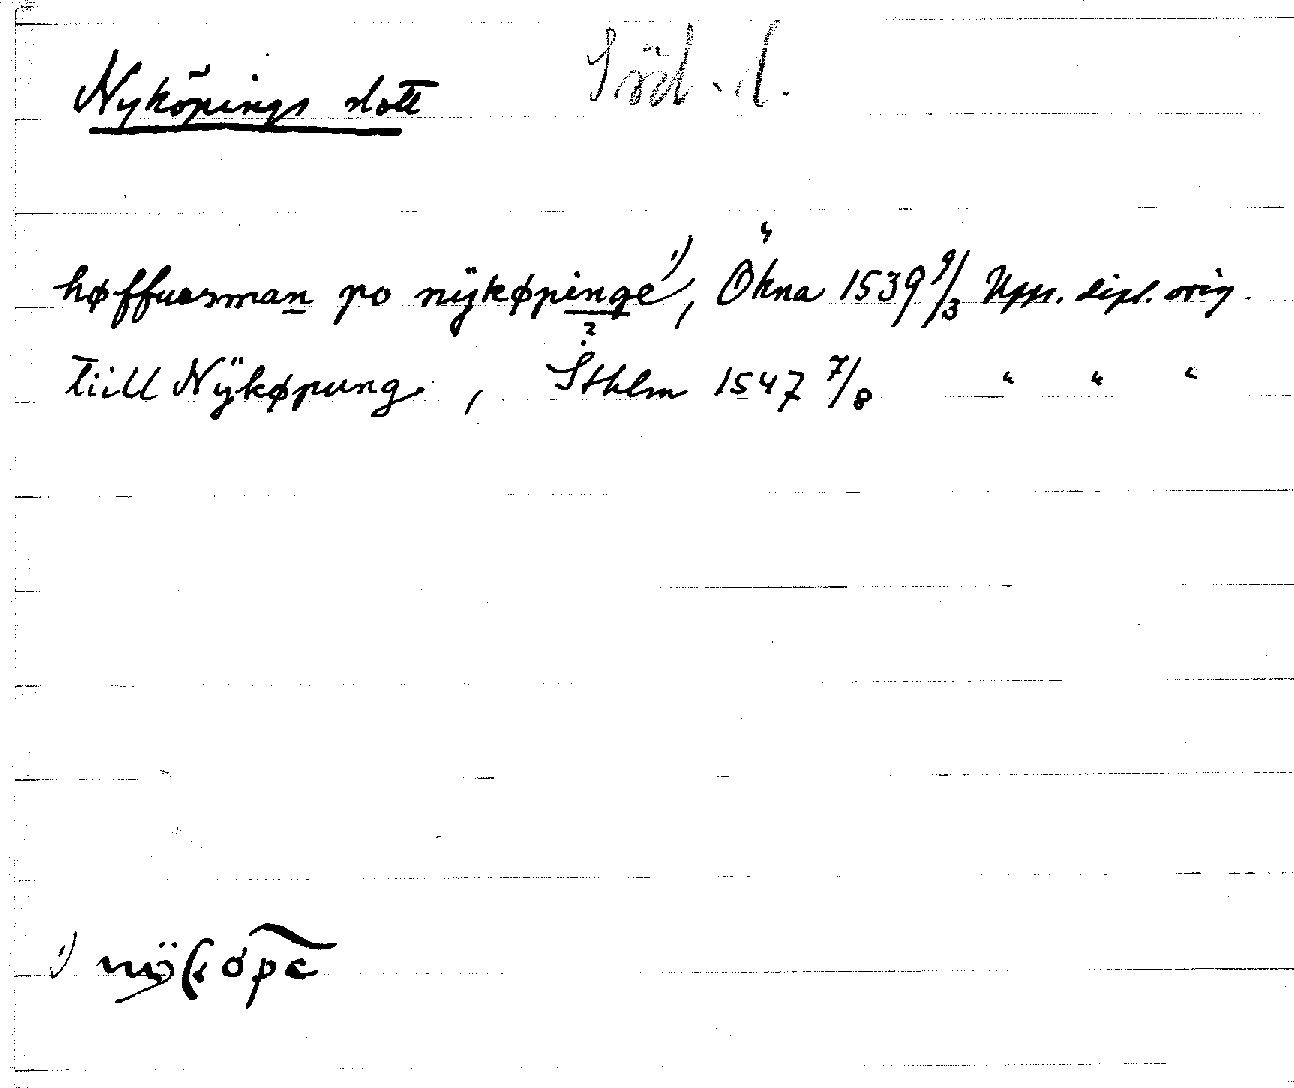 Nyköpings slott Söd. l.
høffuesman po nÿkøpinge 1), Ökna 1539 9/3 Upps. dipl. orig.
?
tiill Nÿkøpung, Sthlm 1547 7/8 " " "
1) nÿkøpe